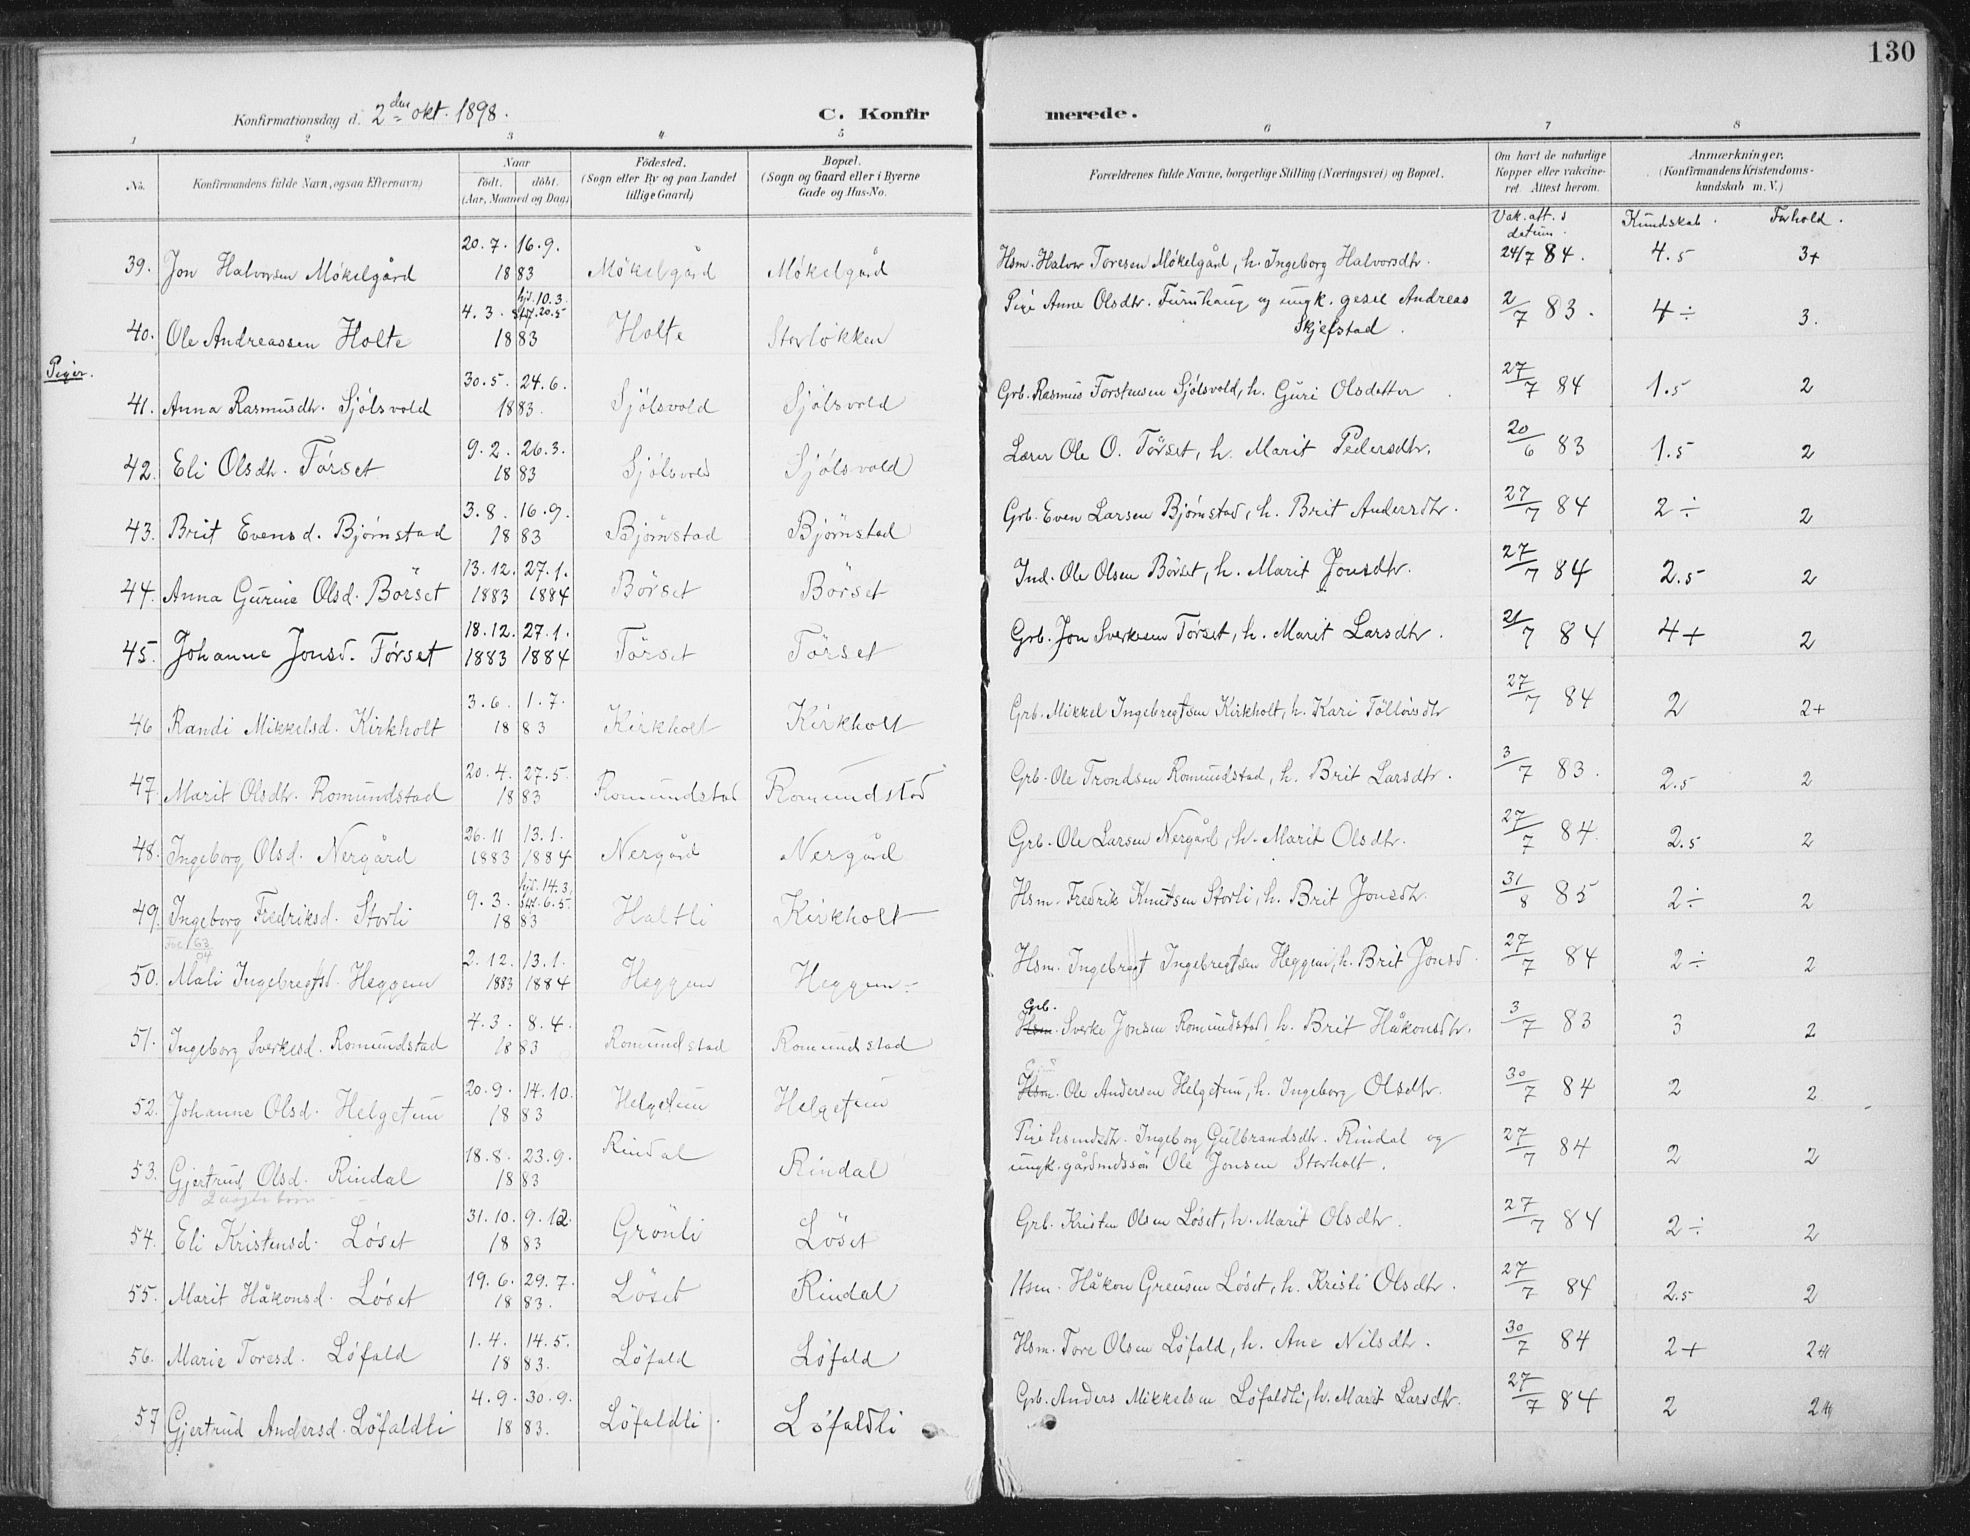 130
Konfirmationsdag d. 2den okt. 1898.
C. Konfirmerede.
1 2 3 4 5 6 7 8
No. Konfirmandens fulde Navn, ogsaa Efternavn) Naar födt. döbt. (Aar, Maaned og Dag) Födested. (Sogn eller By og paa Landet tillige Gaard) Bopæl. (Sogn og Gaard eller i Byerne Gade og Hus-No. Forældrenes fulde Navne, borgerlige Stilling (Næringsvei) og Bopæl. Om havt de naturlige Kopper eller vakcineret. Attest herom. Anmærkninger. (Konfirmandens Kristendomskundskab m. V.)
Vak. att. s datum. Kundskab. Forhold.
39. Jon Halvorsen Møkelgård 20.7. 16.9. 1883 Møkelgård Møkelgård Hsm. Halvor Toresen Møkelgård, h. Ingeborg Halvorsdtr. 24/7 84. 4.5 3+
40. Ole Andreassen Holte 4.3. hjd. 10.3. 20.5 1883 Holte Storløkken Pige Anne Olsdtr. Furuhaug og ungk. gesel Andreas Skjefstad. 2/7 83. 4÷ 3.
Piger.
41. Anna Rasmusdtr. Sjölsvold 30.5. 24.6. 1883. Sjölsvold Sjölsvold Grb. Rasmus Torstensen Sjölsvold, h. Guri Olsdatter 27/7 84 1.5 2
42. Eli Olsdtr. Törset 9.2. 26.3. 1883 Sjölsvold Sjölsvold Lærer Ole O. Törset, h. Marit Pedersdtr. 20/6 83 1.5 2
43. Brit Evensd. Bjørnstad 3.8. 16.9. 1883 Bjørnstad Bjørnstad Grb. Even Larsen Bjørnstad, h. Brit Andersdtr. 27/7 84 2÷ 2
44. Anna Gurine Olsd. Börset 13.12. 27.1. 1883 1884 Börset Börset Ind. Ole Olsen Börset, h. Marit Jonsdtr. 27/7 84 2.5 2
45. Johanne Jonsd. Törset 18.12. 27.1. 1883 1884 Törset Törset Grb. Jon Sverkesen Törset, h. Marit Larsdtr. 21/7 84 4+ 2
46 Randi Mikkelsd. Kirkholt 3.6. 1.7. 1883 Kirkholt Kirkholt Grb. Mikkel Ingebregtsen Kirkholt, h. Kari Töllövsdtr 27/7 84 2 2+
47. Marit Olsdtr. Romundstad 20.4. 27.5. 1883 Romundstad Romundstad Grb. Ole Trondsen Romundstad, h. Brit Larsdtr. 3/7 83. 2.5 2
48. Ingeborg Olsd. Nergård 26.11 13.1. 1883 1884 Nergård Nergård Grb. Ole Larsen Nergård, h. Marit Olsdtr. 27/7 84. 2.5 2
49. Ingeborg Fredriksd. Storli 9.3. hjd. 14.3. 6.5. 1883 Haltli Kirkholt Hsm. Fredrik Knutsen Storli, h. Brit Jonsdtr. 31/8 85 2÷ 2
50. Mali Ingebregtsd. Heggem 2.12. 13.1. 1883 1884 Heggem Heggem Hsm. Ingebregt Ingebregtsen Heggem, h. Brit Jonsd. 27/7 84 2÷ 2
51. Ingeborg Sverkesd. Romundstad 4.3. 8.4. 1883 Romundstad Romundstad Grb. Hsm. Sverke Jonsen Romundstad h. Brit Håkonsdtr. 3/7 83 3 2
52. Johanne Olsd. Helgetun 20.9. 14.10. 1883 Helgetun Helgetun Hsm. Ole Andersen Helgetun, h. Ingeborg Olsdtr. 30/7 84 2 2
53. Gjertrud Olsd. Rindal 18.8. 23.9. 1883 Rindal Rindal Pige hsmdsdtr. Ingeborg Gulbrandsdtr. Rindal og ungk. gårdmdssön Ole Jonsen Storholt. 27/7 84 2 2
54. Eli Kristensd. Løset 31.10. 9.12. 1883 Grönli Löset Grb. Kristen Olsen Løset, h. Marit Olsdtr. 27/7 84 2÷ 2
55. Marit Håkonsd. Løset 19.6. 29.7. 1883. Löset Rindal Hsm. Håkon Greusen Løset, h. Kristi Olsdtr. 27/7 84 2.5 2
56. Marie Toresd. Løfald 1.4. 14.5. 1883. Løfald Løfald Hsm. Tore Olsen Løfald, h. Ane Nilsdtr. 30/7 84 2+ 2
57 Gjertrud Andersd. Löfaldli 4.9. 30.9. 1883. Löfaldli Løfaldli Grb. Anders Mikkelsen Løfaldli, h. Marit Larsdtr. 27/7 84 2 2